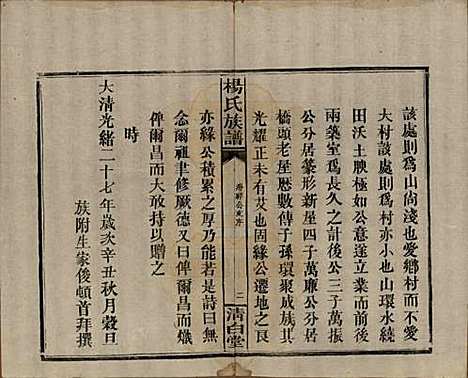 該處則爲山尙淺也愛鄉村而不愛
大村該處則爲村亦小也山環水繞
田沃土腴極如公意遂立業而前後
兩築室爲長久之計後公三子萬貞
公分居篆形新屋四子萬廉公分居
橋頭老屋厯數傳子孫環聚成族剡
光耀正未有艾也固緣公遷地之良
楊氏族譜
序
二
清白堂
亦緣公積累之厚乃能若是詩曰無
念爾祖聿修厥德又曰俾爾昌而熾
俾爾昌而大敢以贈之
時
大清光緒二十七年歲次辛丑秋月穀旦
族附生家俊頓首拜撰